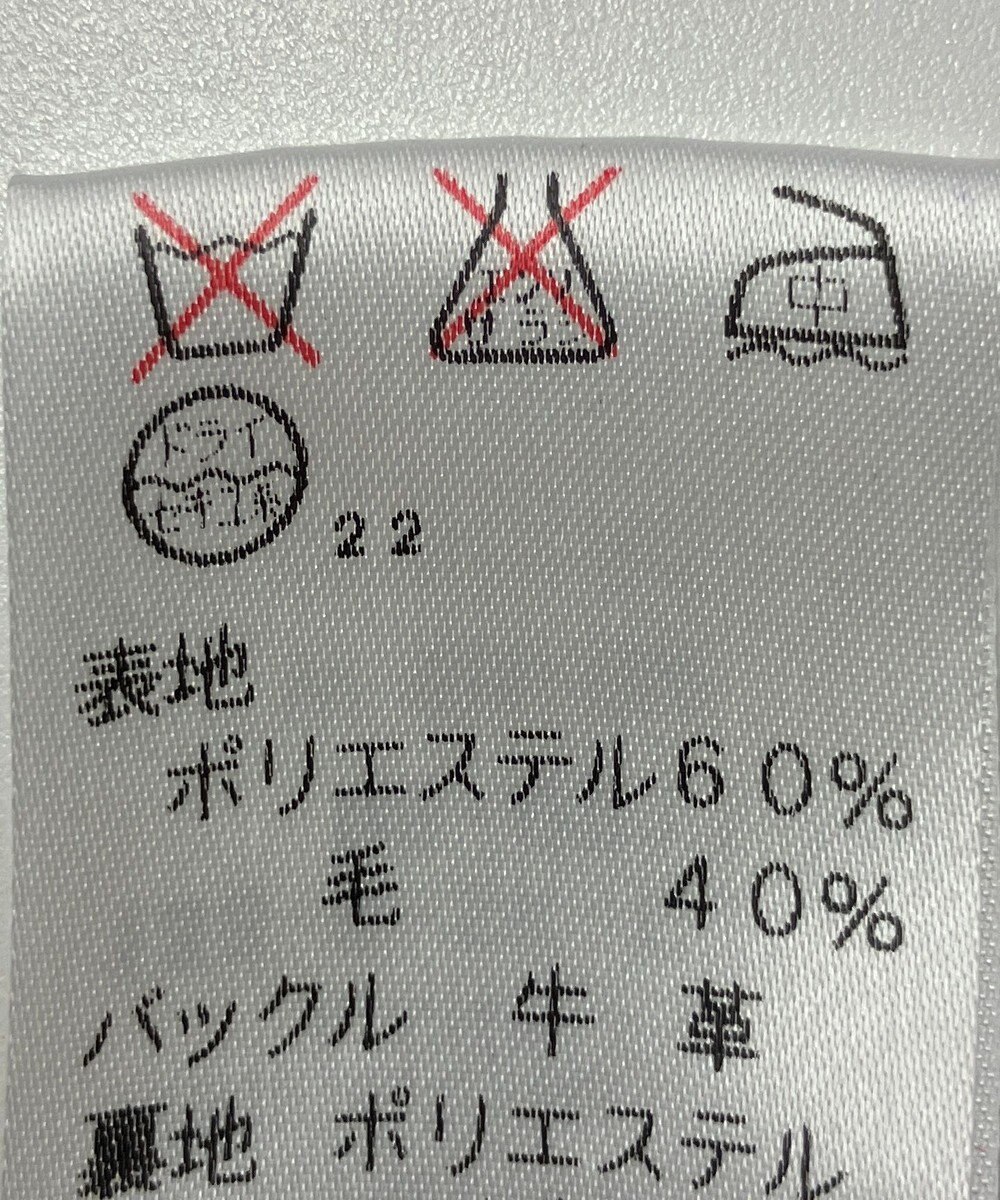 エンソ
サラシ
中
ドライ
セキユ系
22
表地
ポリエステル60%
毛 40%
バックル 牛 革
裏地 ポリエステル